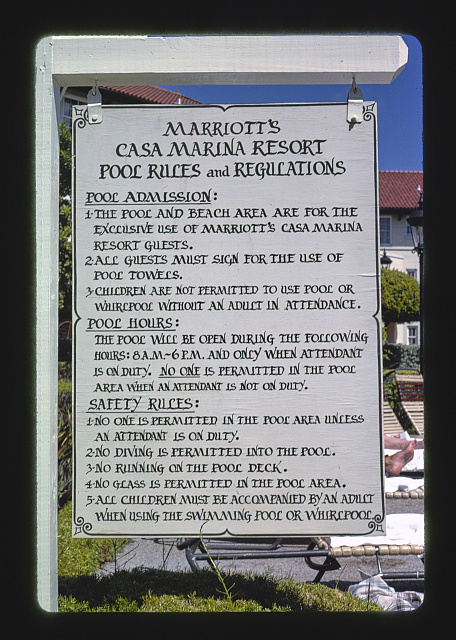 MARRIOTT'S
CASA MARINA RESORT
POOL RULES and REGULATIONS
POOL ADMISSION:
1·THE POOL AND BEACH AREA ARE FOR THE
EXCLUSIVE USE OF MARRIOTT'S CASA MARINA
RESORT GUESTS.
2·ALL GUESTS MUST SIGN FOR THE USE OF
POOL TOWELS.
3·CHILDREN ARE NOT PERMITTED TO USE POOL OR
WHIRLPOOL WITHOUT AN ADULT IN ATTENDANCE.
POOL HOURS:
THE POOL WILL BE OPEN DURING THE FOLLOWING
HOURS: 8 A.M.-6 P.M. AND ONLY WHEN ATTENDANT
IS ON DUTY. NO ONE IS PERMITTED IN THE POOL
AREA WHEN AN ATTENDANT IS NOT ON DUTY.
SAFETY RULES:
1·NO ONE IS PERMITTED IN THE POOL AREA UNLESS
AN ATTENDANT IS ON DUTY.
2·NO DIVING IS PERMITTED INTO THE POOL.
3·NO RUNNING ON THE POOL DECK.
4·NO GLASS IS PERMITTED IN THE POOL AREA.
5·ALL CHILDREN MUST BE ACCOMPANIED BY AN ADULT
WHEN USING THE SWIMMING POOL OR WHIRLPOOL.